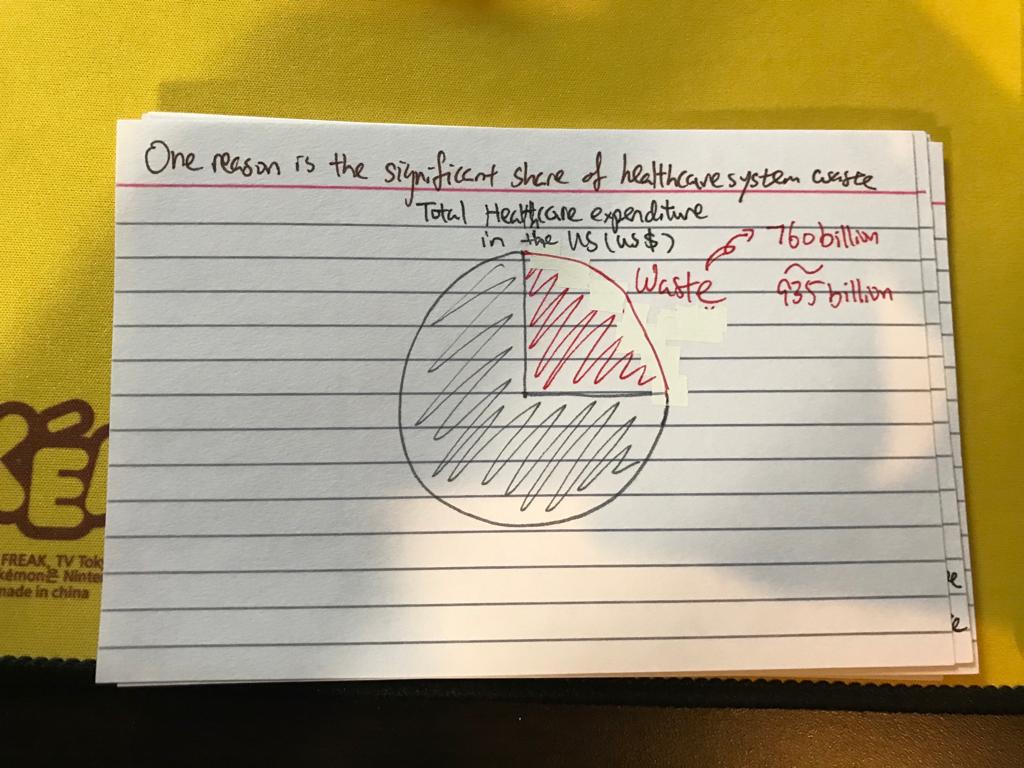 One reason is the significant share of healthcare system waste
Total Healthcare expenditure
in the US (US$)
Waste
760 billion
~
935 billion
FREAK, TV Tok
kémon은 Ninte
made in china